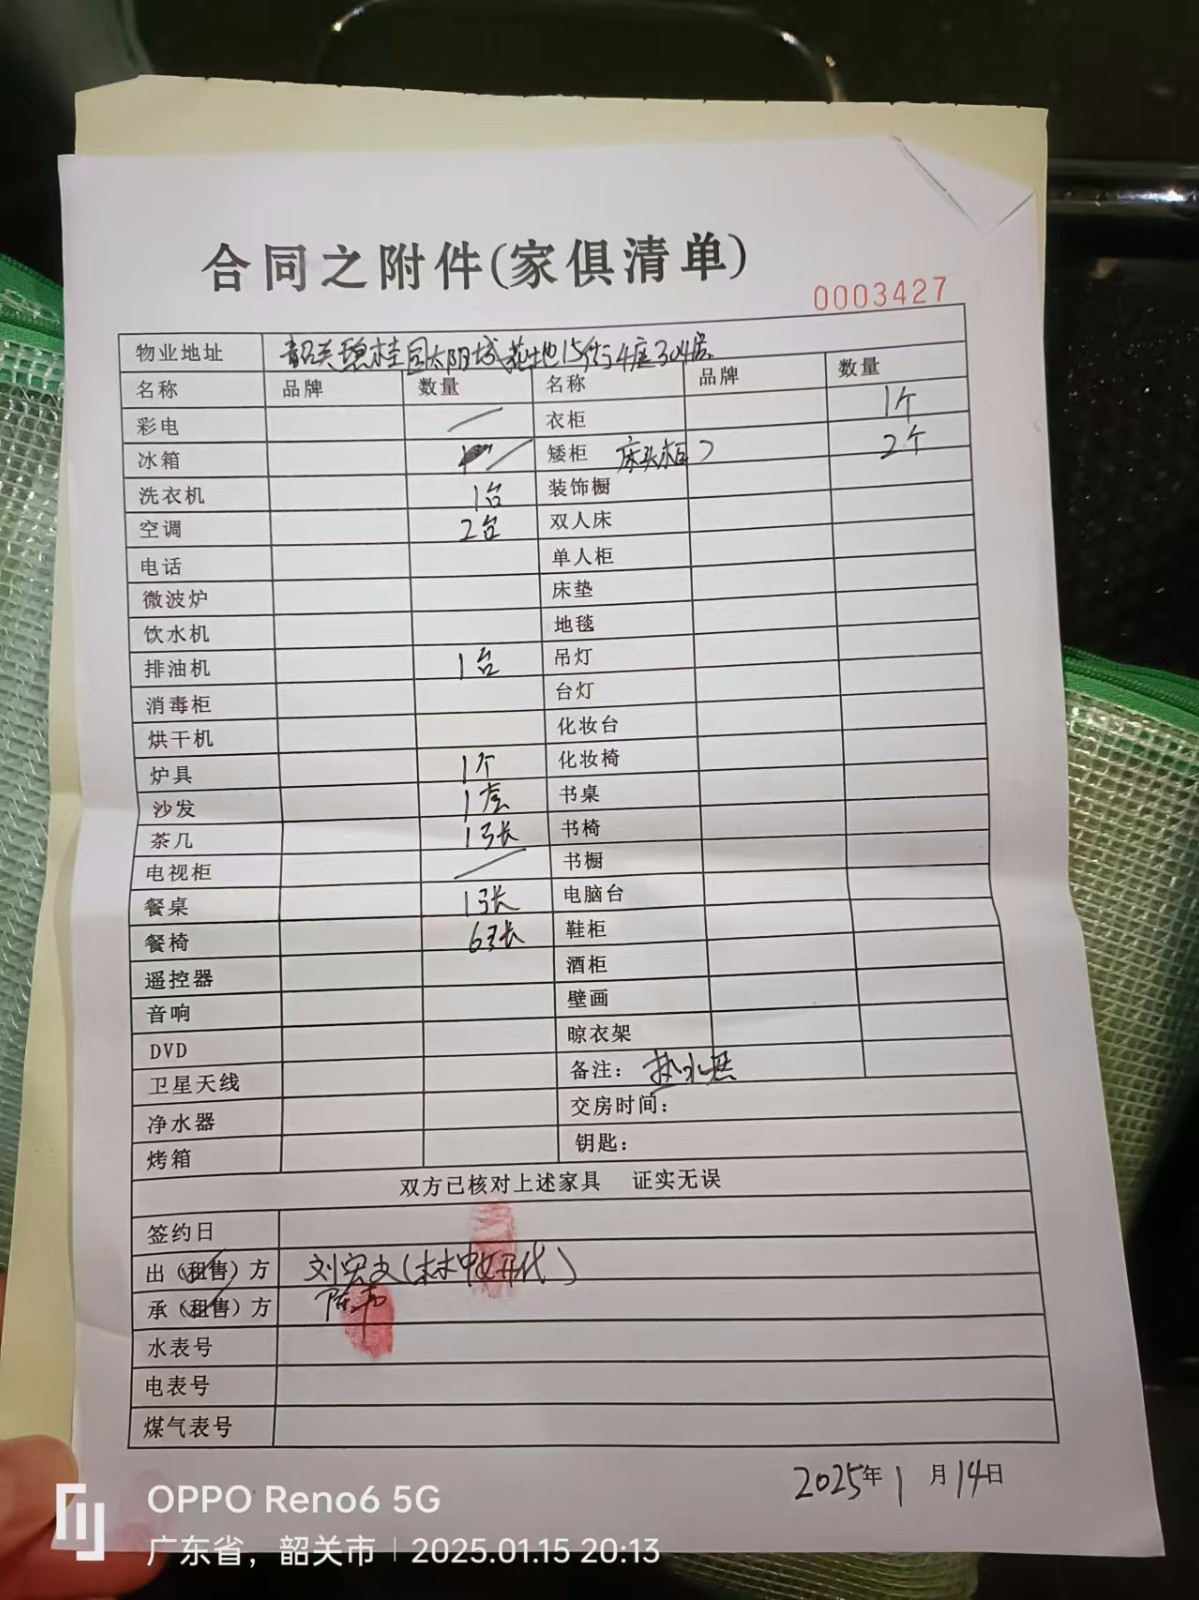 合同之附件(家俱清单)
0003427
物业地址 韶关碧桂园太阳城花地15街4座304房
名称 品牌 数量 名称 品牌 数量
彩电 衣柜 1个
冰箱 矮柜 床头柜 2个
洗衣机 1台 装饰橱
空调 2台 双人床
电话 单人柜
微波炉 床垫
饮水机 地毯
排油机 1台 吊灯
消毒柜 台灯
烘干机 化妆台
炉具 1个 化妆椅
沙发 1套 书桌
茶几 1张 书椅
电视柜 书橱
餐桌 1张 电脑台
餐椅 6张 鞋柜
遥控器 酒柜
音响 壁画
DVD 晾衣架
卫星天线 备注: 热水器
净水器 交房时间:
烤箱 钥匙:
双方已核对上述家具 证实无误
签约日
出(租售)方 刘宏文(林中 代)
承(租售)方 陈
水表号
电表号
煤气表号
2025年1月14日
OPPO Reno6 5G
广东省，韶关市 | 2025.01.15 20:13